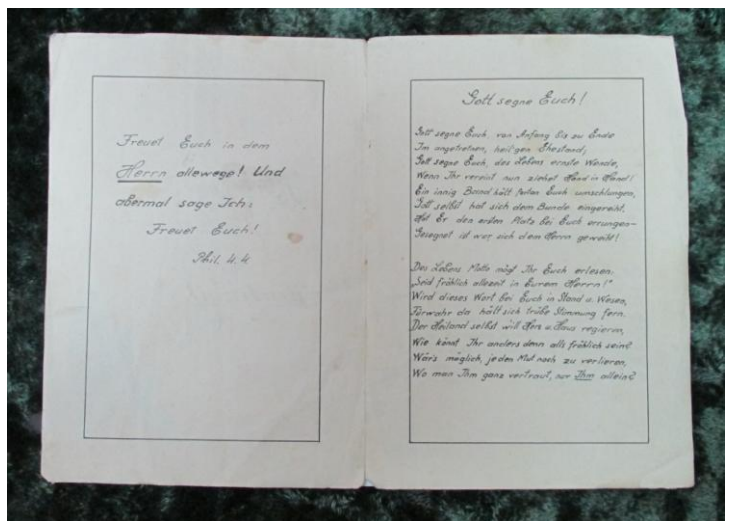 Freuet Euch in dem
Herrn allewege! Und
abermal sage Ich:
Freuet Euch!
Phil. 4.4
Gott segne Euch!
Gott segne Euch von Anfang bis zu Ende
Im angetretnen, heil'gen Ehestand;
Gott segne Euch, des Lebens ernste Wende,
Wenn Ihr vereint nun ziehet Hand in Hand!
Ein innig Band hält fortan Euch umschlungen,
Gott selbst hat sich dem Bunde eingereiht,
Hat Er den ersten Platz bei Euch errungen-
Gesegnet ist wer sich dem Herrn geweiht!
Des Lebens Motto mögt Ihr Euch erlesen:
„Seid fröhlich allezeit in Eurem Herrn!"
Wird dieses Wort bei Euch in Stand u. Wesen,
Fürwahr da hält sich trübe Stimmung fern.
Der Heiland selbst will Herz u. Haus regieren,
Wie könnt Ihr anders denn als fröhlich sein?
Wär's möglich, jeden Mut noch zu verlieren,
Wo man Ihm ganz vertraut, nur Ihm allein?